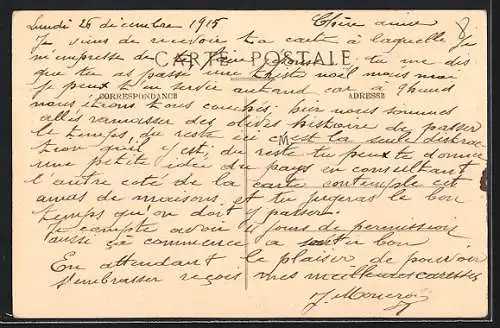 Lundi 26 décembre 1915 Chère amie
Je viens de recevoir ta carte à laquelle je
m'empresse de tu me dis
CARTE POSTALE
que tu as passé une triste noël mais moi
je peux t'en servir autant car à 9 heures
CORRESPONDANCE ADRESSE
nous étions tous couchés, puis nous sommes
allés ramasser des olives histoire de passer
le temps, du reste ici c'est la seule distrac
tion qu'il y est, du reste tu peux te donner
une petite idée du pays en consultant
l'autre coté de la carte contemple cet
amas de maisons et tu jugeras le bon
temps qu'on doit y passer.
Je compte avoir jours de permission
aussi ça commence à sentir bon
En attendant le plaisir de pouvoir
t'embrasser reçois mes meilleures caresses